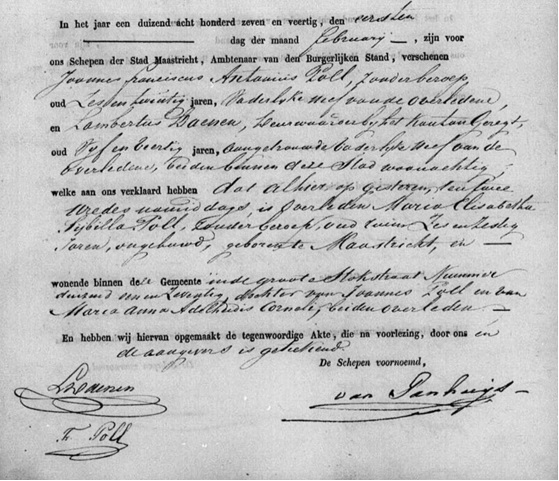 In het jaar een duizend acht honderd zeven en veertig, den eersten
dag der maand februarij, zijn voor
ons Schepen der Stad Maastricht, Ambtenaar van den Burgerlijken Stand, verschenen
Joannes Franciscus Antonius Poll, zonder beroep,
oud Zes en twintig jaren, Vaderlijke neef van de overledene,
en Lambertus Daenen, deurwaarder bij het Kanton Geregt,
oud Vijf en Veertig jaren, aangetrouwde Vaderlijke neef van de
Overledene, beiden binnen deze Stad woonachtig
welke aan ons verklaard hebben dat alhier op gisteren, ten twee
ures des namiddags, is Overleden Maria Elisabetha
Sybilla Poll, Zonder beroep, oud ruim Zes en Zestig
Jaren, ongehuwd, geboren te Maastricht, en
wonende binnen deze Gemeente in de groote Stokstraat Nummer
duizend een en Zeventig, dochter van Joannes Poll en van
Maria Anna Adelheidis Cornelij, beiden overleden
En hebben wij hiervan opgemaakt de tegenwoordige Akte, die na voorlezing, door ons en
de aangevers is geteekend
De Schepen voornoemd,
LDaenen
van Panhuys
F. Poll